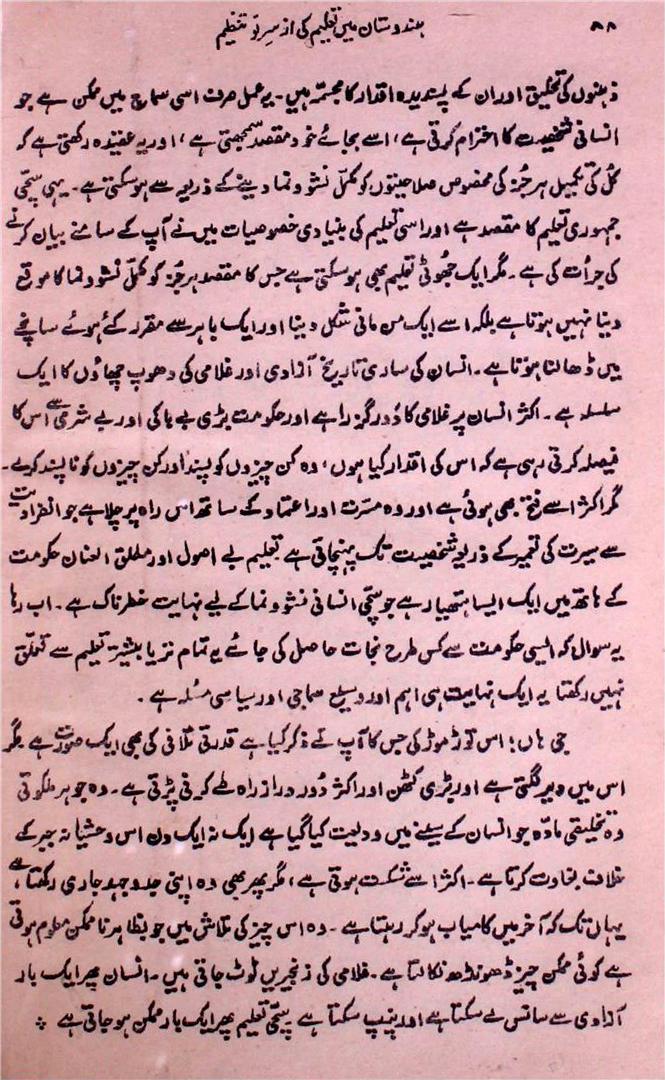 ۸۸
ہندوستان میں تعلیم کی از سرِ نو تنظیم
ذہنوں کی تخلیق اور ان کے پسندیدہ اقدار کا مجسمہ ہیں۔ یہ عمل صرف اسی سماج میں ممکن ہے جو
انسانی شخصیت کا احترام کرتی ہے، اسے بجائے خود مقصد سمجھتی ہے، اور یہ عقیدہ رکھتی ہے کہ
کُل کی تکمیل ہر جُز کی مخصوص صلاحیتوں کو مکمل نشو و نما دینے کے ذریعہ سے ہو سکتی ہے۔ یہی سچّی
جمہوری تعلیم کا مقصد ہے اور اسی تعلیم کی بنیادی خصوصیات میں نے آپ کے سامنے بیان کرنے
کی جرأت کی ہے۔ مگر ایک جھوٹی تعلیم بھی ہو سکتی ہے جس کا مقصد ہر جُز کو مکمل نشو و نما کا موقع
دینا نہیں ہوتا ہے بلکہ اسے ایک من مانی شکل دینا اور ایک باہر سے مقرر کئے ہوئے سانچے
میں ڈھالنا ہوتا ہے۔ انسان کی ساری تاریخ آزادی اور غلامی کی دھوپ چھاؤں کا ایک
سلسلہ ہے۔ اکثر انسان پر غلامی کا دَور گزرا ہے اور حکومت بڑی بے باکی اور بے شرمی سے اس کا
فیصلہ کرتی رہی ہے کہ اس کی اقدار کیا ہوں، وہ کن چیزوں کو پسند اور کن چیزوں کو ناپسند کرے۔
مگر اکثر اسے فتح بھی ہوئی ہے اور وہ مسّرت اور اعتماد کے ساتھ اس راہ پر چلا ہے جو انفرادیت
سے سیرت کی تعمیر کے ذریعہ شخصیت تک پہنچاتی ہے۔ تعلیم بے اصول اور مطلق العنان حکومت
کے ہاتھ میں ایک ایسا ہتھیار ہے جو سچّی انسانی نشو و نما کے لیے نہایت خطرناک ہے۔ اب رہا
یہ سوال کہ ایسی حکومت سے کس طرح نجات حاصل کی جائے یہ تمام تر یا بیشتر تعلیم سے تعلّق
نہیں رکھتا یہ ایک نہایت ہی اہم اور وسیع سماجی اور سیاسی مسئلہ ہے۔
جی ہاں؛ اس توڑ موڑ کی جس کا آپ نے ذکر کیا ہے قدرتی تلافی کی بھی ایک صورت ہے مگر
اس میں دیر لگتی ہے اور بڑی کٹھن اور اکثر دُور دراز راہ طے کرنی پڑتی ہے۔ وہ جوہر ملکوتی
وہ تخلیقی مادّہ جو انسان کے سینے میں ودیعت کیا گیا ہے ایک نہ ایک دن اس وحشیانہ جبر کے
خلاف بغاوت کرتا ہے۔ اکثر اسے شکست ہوتی ہے، مگر پھر بھی وہ اپنی جدوجہد جاری رکھتا ہے،
یہاں تک کہ آخر میں کامیاب ہو کر رہتا ہے۔ وہ اس چیز کی تلاش میں جو بظاہر ناممکن معلوم ہوتی
ہے کوئی ممکن چیز ڈھونڈھ نکالتا ہے۔ غلامی کی زنجیریں ٹوٹ جاتی ہیں۔ انسان پھر ایک بار
آزادی سے سانس لے سکتا ہے اور پنپ سکتا ہے۔ سچّی تعلیم پھر ایک بار ممکن ہو جاتی ہے ؞